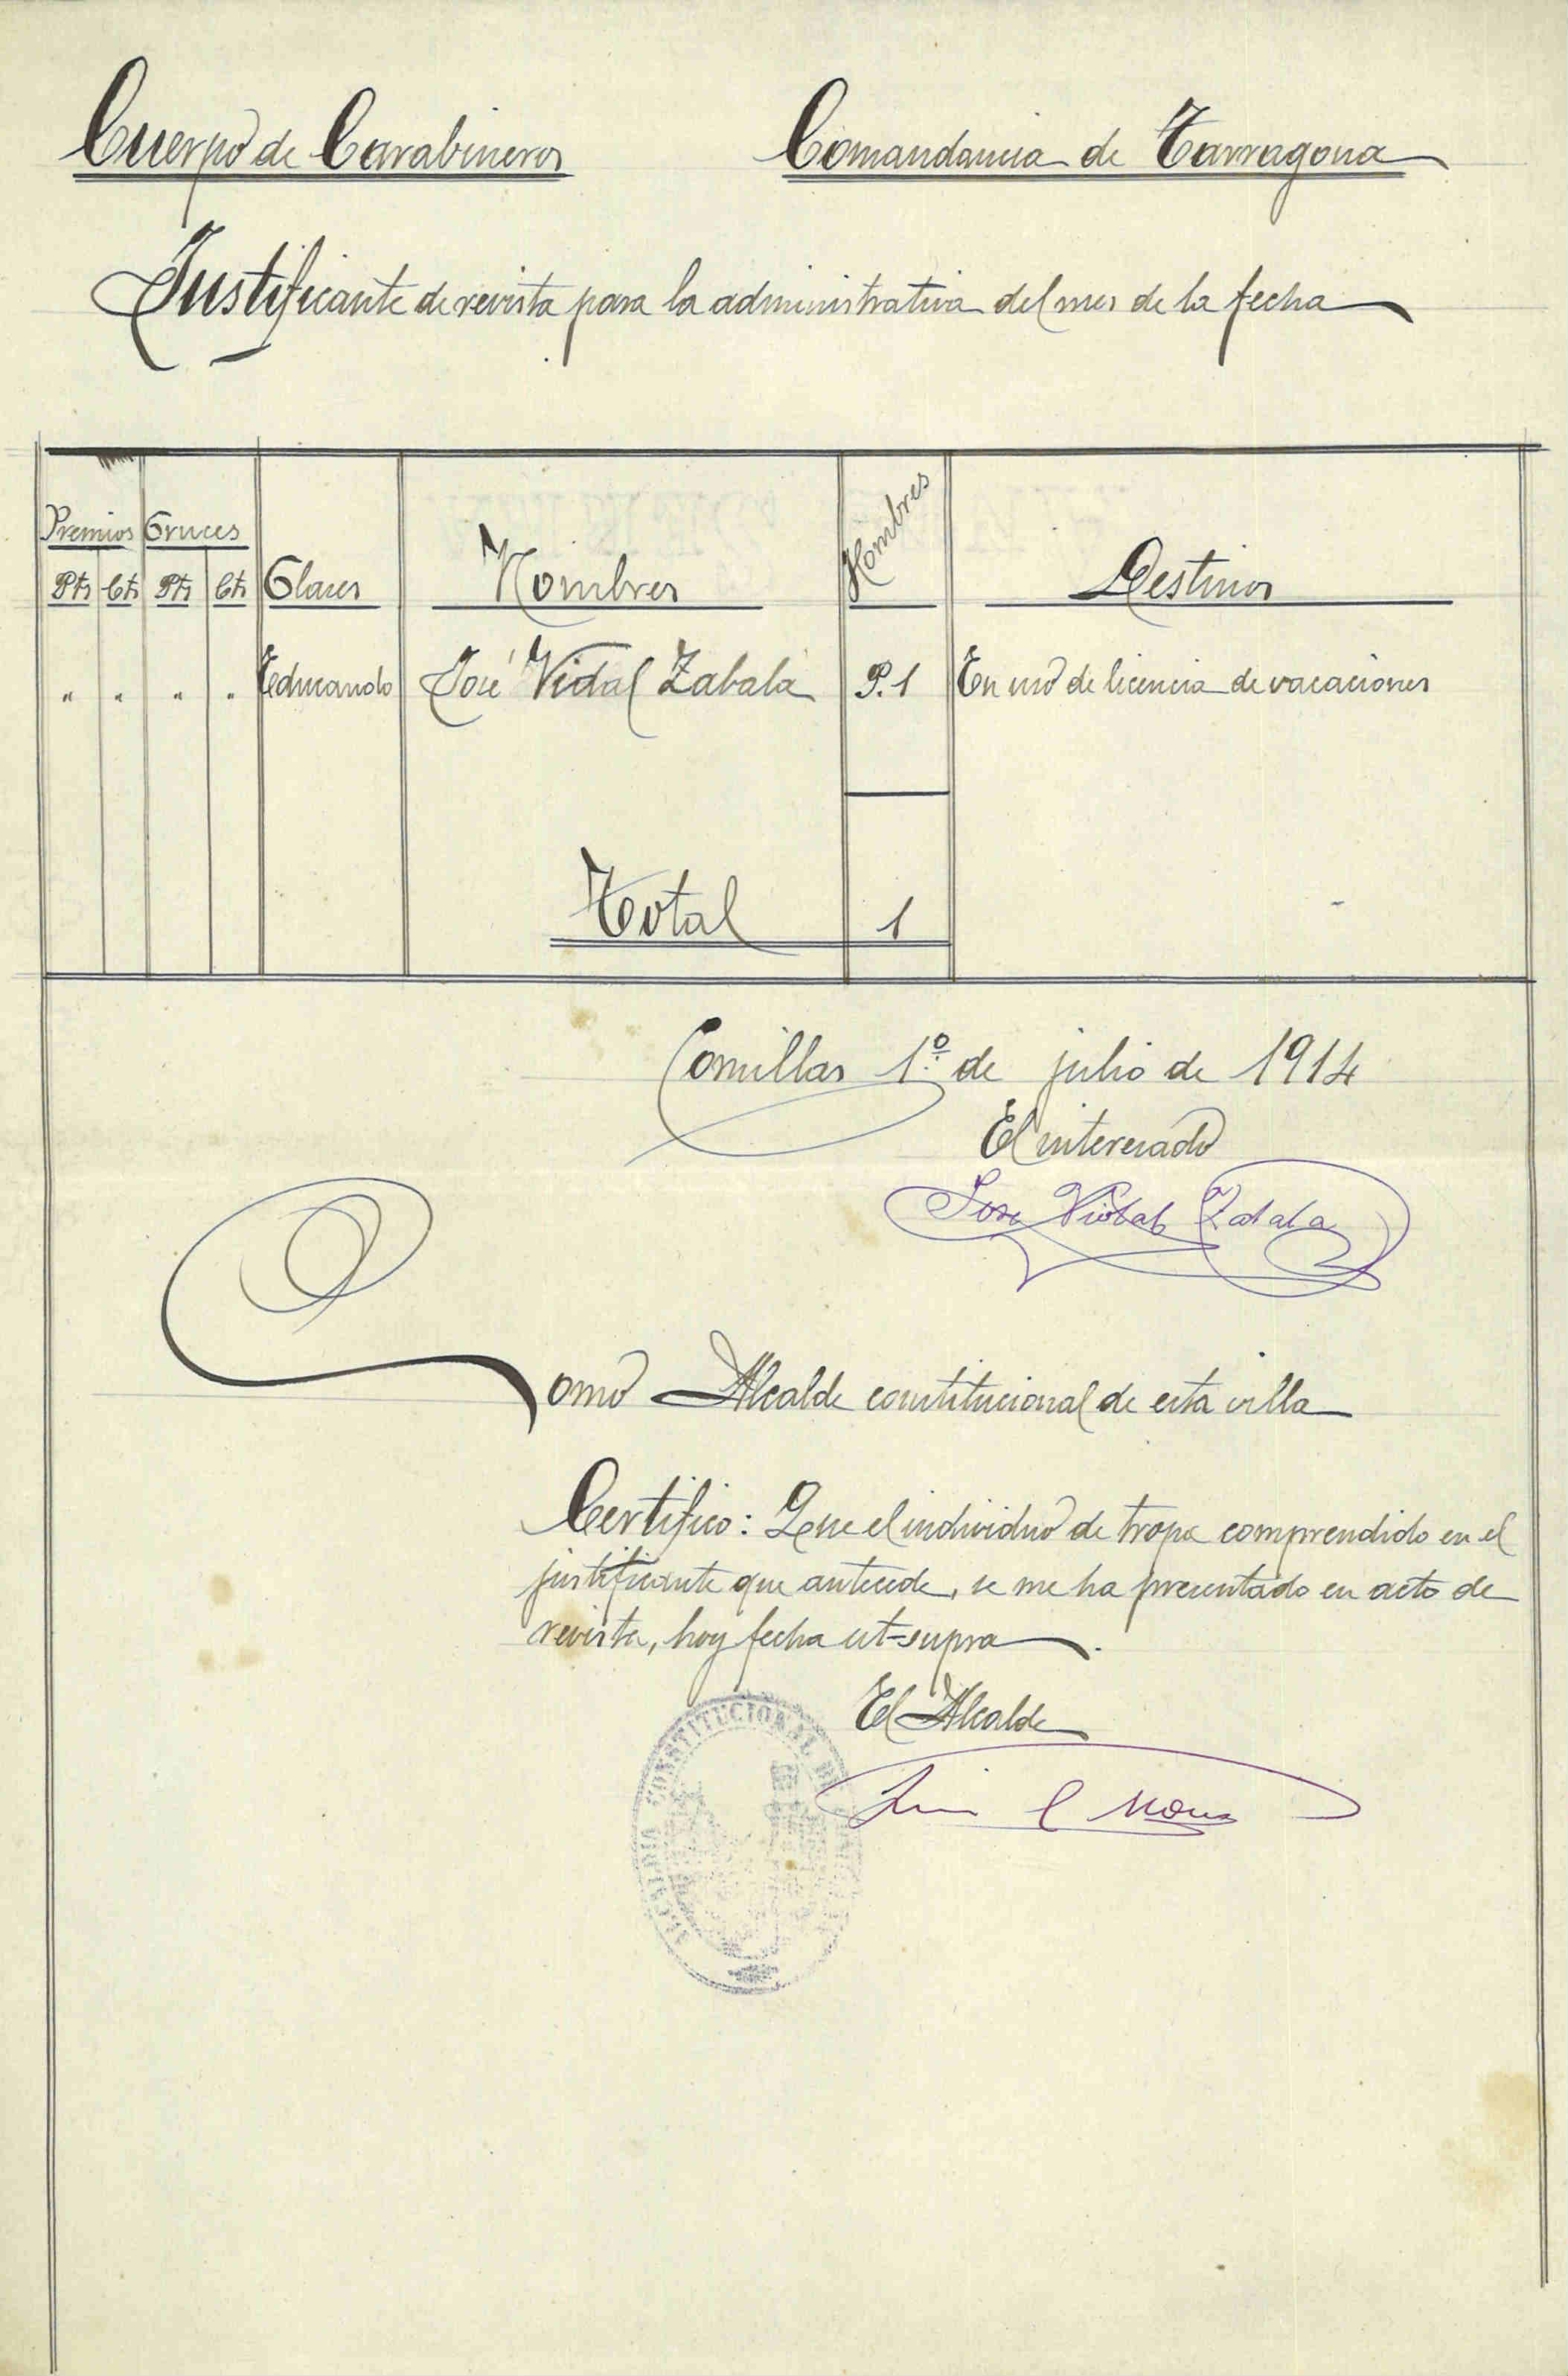 Cuerpo de Carabineros Comandancia de Tarragona
Justificante de revista para la administrativa del mes de la fecha
Premios Cruces Clases Nombres Hombres Destinos
Pts Cts Pts Cts
" " " " Educando José Vidal Zabala P. 1 En uso de licencia de vacaciones
Total 1
Comillas 1º de julio de 1914
El interesado
Jose Vidal Zabala
Como Alcalde constitucional de esta villa
Certifico: Que el individuo de tropa comprendido en el
justificante que antecede, se me ha presentado en acto de
revista, hoy fecha ut-supra.
El Alcalde
CONSTITUCIONAL